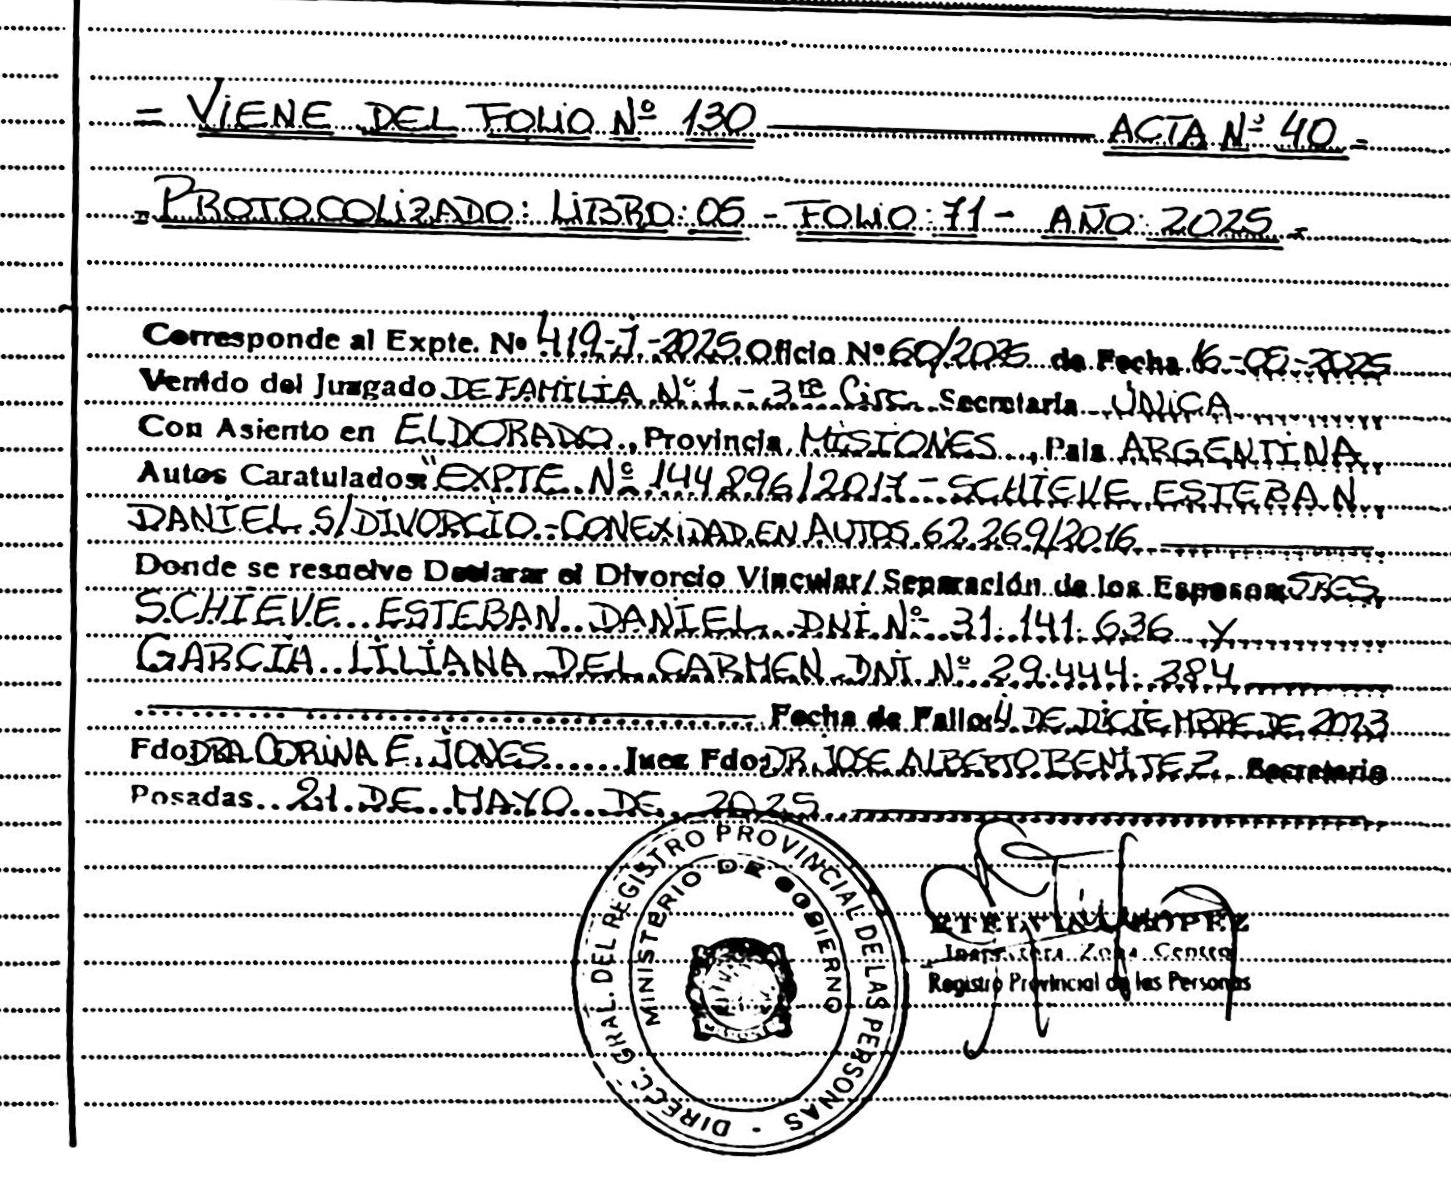 = VIENE DEL FOLIO Nº 130 ACTA Nº 40 =
= PROTOCOLIZADO: LIBRO: 05 - FOLIO: 71 - AÑO: 2025 =
Corresponde al Expte. Nº 419-J-2025 Oficio Nº 60/2025 de Fecha 16-05-2025
Venido del Juzgado DE FAMILIA Nº 1 - 3ra Circ. Secretaria ÚNICA
Con Asiento en ELDORADO, Provincia MISIONES, Pais ARGENTINA
Autos Caratulados: "EXPTE. Nº 144896/2017 - SCHIEVE ESTEBAN
DANIEL S/DIVORCIO - CONEXIDAD EN AUTOS 62.269/2016
Donde se resuelve Declarar el Divorcio Vincular/Separación de los Esposos: SRES.
SCHIEVE ESTEBAN DANIEL DNI Nº 31.141.636 Y
GARCÍA LILIANA DEL CARMEN DNI Nº 29.444.384
Fecha de Fallo: 4 DE DICIEMBRE DE 2023
Fdo DRA CORINA E. JONES Juez Fdo: DR. JOSE ALBERTO BENITEZ Secretario
Posadas 21 DE MAYO DE 2025
DIRECC. GRAL. DEL REGISTRO PROVINCIAL DE LAS PERSONAS -
MINISTERIO DE GOBIERNO
ETELVINA LOPEZ
Inspectora Zona Centro
Registro Provincial de las Personas